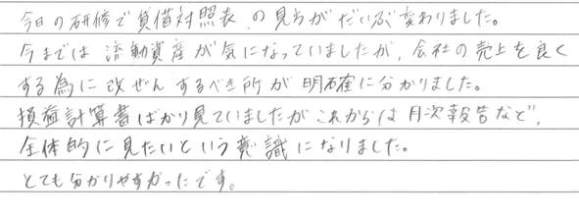 今日の研修で貸借対照表の見方がだいぶ変わりました。
今までは流動資産が気になっていましたが、会社の売上を良く
する為に改ぜんするべき所が明確に分かりました。
損益計算書ばかり見ていましたがこれからは月次報告など、
全体的に見たいという意識になりました。
とても分かりやすかったです。